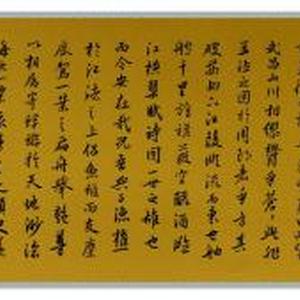 武昌山川相繆鬱乎蒼蒼此非
孟德之困於周郎者乎方其
破荊州下江陵順流而東也舳
艫千里旌旗蔽空釃酒臨
江橫槊賦詩固一世之雄也
而今安在哉況吾與子漁樵
於江渚之上侶魚蝦而友麋
鹿駕一葉之扁舟舉匏樽
以相屬寄蜉蝣於天地渺滄
海之一粟哀吾生之須臾